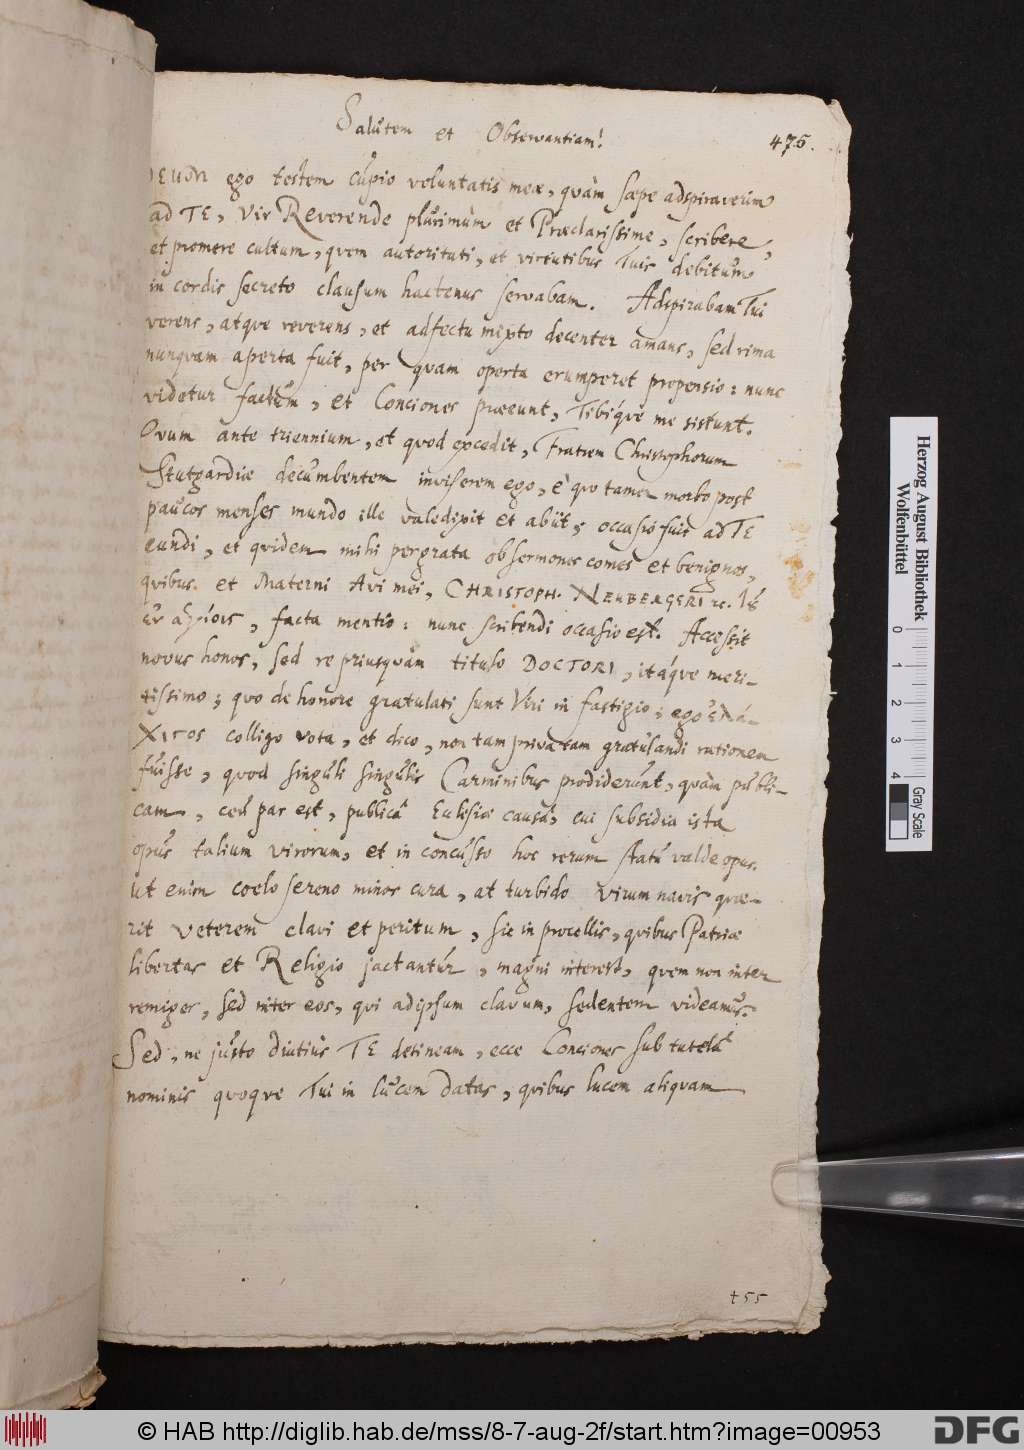 Salutem et Observantiam!
475.
DEUM ego testem cupio voluntatis meæ, quàm sæpe adspiraverim
ad TE, Vir Reverende plurimùm et Præclarissime, scribere,
et promere cultum, quem autoritati, et virtutibus Tuis debitum,
in cordis secreto clausum hactenus servabam. Adspirabam Tui
verens, atque reverens, et adfectu mixto decenter amans, sed rima
nunquam aperta fuit, per quam operta erumperet propensio: nunc
videtur factum, et Conciones præeunt, Tibíque me sistunt.
Qvum ante triennium, et quod excedit, Fratrem Christophorum
Stutgardiæ decumbentem inviserem ego, è quo tamen morbo post
paucos menses mundo ille valedixit et abiit; occasio fuit ad TE
eundi, et quidem mihi pergrata ob sermones comes et benignos,
quibus et Materni Avi mei, CHRISTOPH. NEUBERGERI ꝛc.
facta mentio: nunc scribendi occasio est. Accessit
novus honos, sed re priusquàm titulo DOCTORI, itáque meri-
tissimo; quo de honore gratulati sunt Viri in fastigio; ego
colligo vota, et dico, non tam privatam gratulandi rationem
fuisse, quod singuli singulis Carminibus prodiderunt, quàm publi-
cam, ceu par est, publicâ Eclesiæ causâ, cui subsidia ista
opus talium virorum, et in concusso hoc rerum statu valde opus.
Ut enim coelo sereno minor cura, at turbido virum navis quæ-
rit veterem clavi et peritum, sic in procellis, quibus Patriæ
libertas et Religio jactantur, magni interest, quem non inter
remiges, sed inter eos, qui ad ipsum clavum, sedentem videamus.
Sed, ne justo diutius TE detineam, ecce Conciones sub tutelâ
nominis quoque Tui in lucem datas, quibus lucem aliquam
455
Herzog August Bibliothek
Wolfenbüttel
0 1 2 3 4
Gray Scale
© HAB http://diglib.hab.de/mss/8-7-aug-2f/start.htm?image=00953
DFG